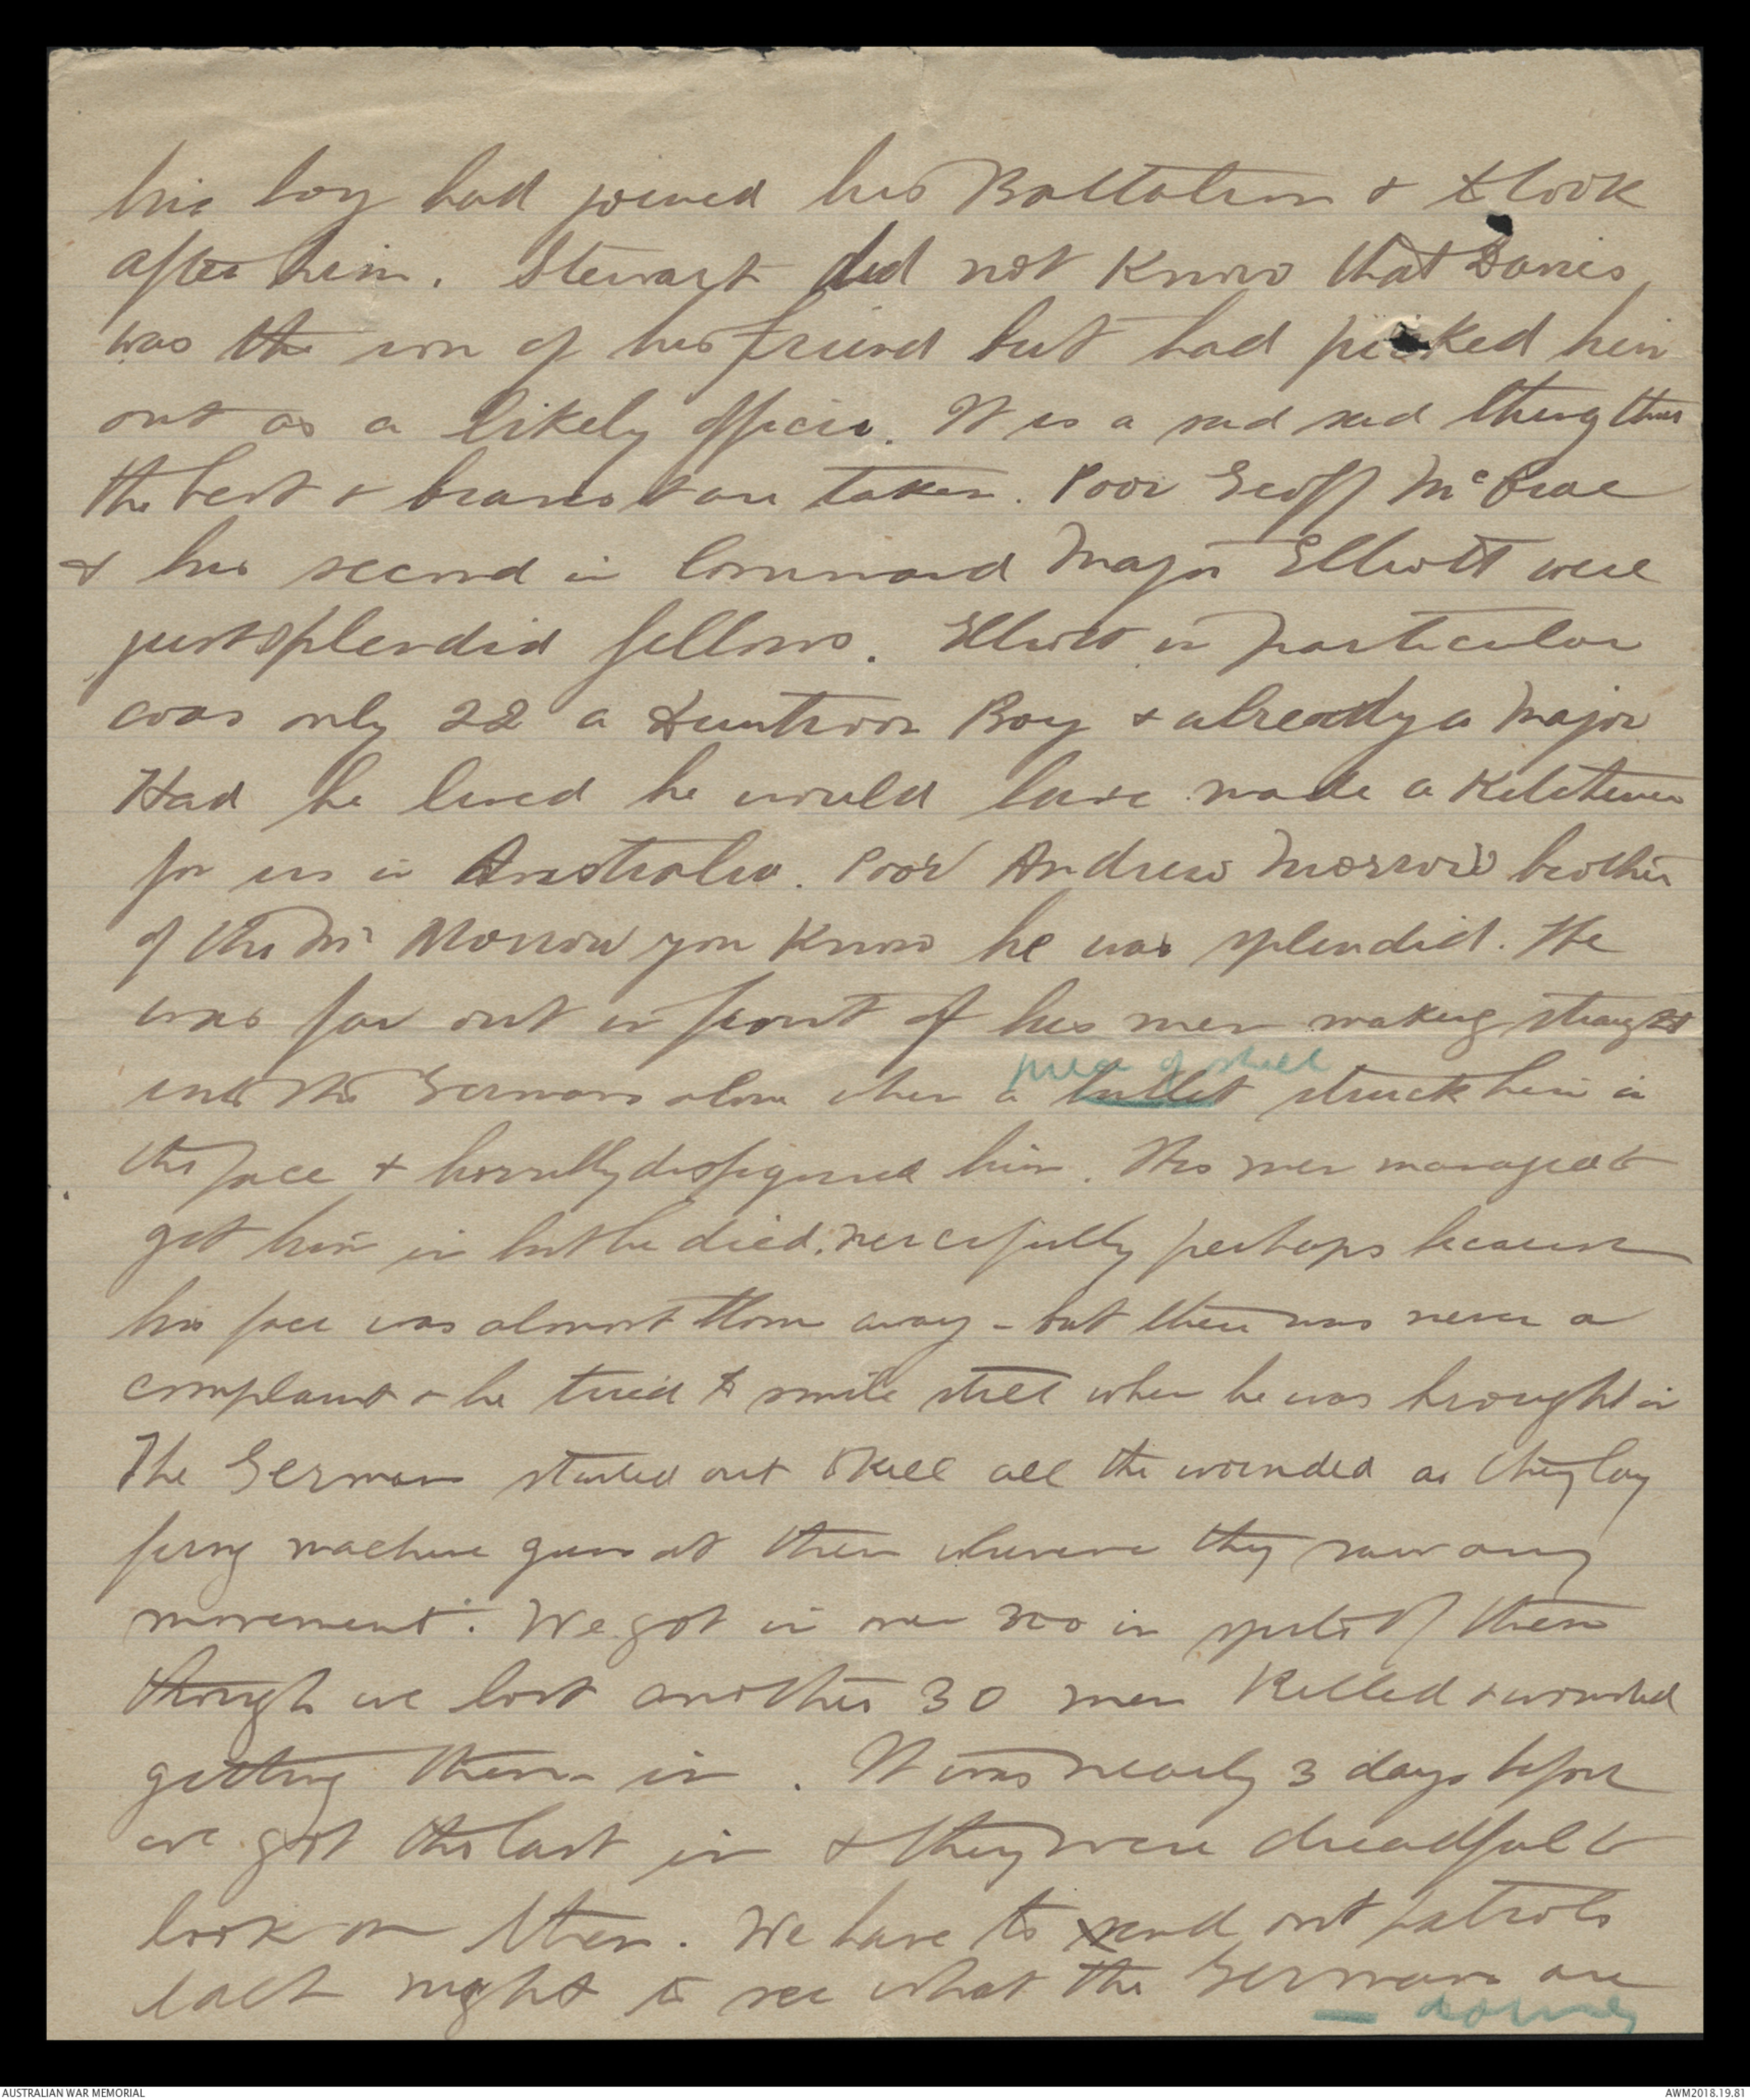 his boy had joined his Battalion & to look
after him. Stewart did not know that Davies
was the son of his friend but had picked him
out as a likely officer. It is a sad sad thing thus
the best & bravest are taken. Poor Geoff McCrae
& his second in Command Major Elliott were
just splendid fellows. Elliott in particular
was only 22 a Duntroon Boy & already a Major
Had he lived he would have made a Kitchener
for us in Australia. Poor Andrew Morrow brother
of the Mr Morrow you know he was splendid. He
was far out in front of his men making straight
piece of shell
into the Germans alone when a bullet struck him in
the face & horribly disfigured him. His men managed to
get him in but he died, mercifully perhaps because
his face was almost blown away - but there was never a
complaint & he tried to smile still when he was brought in
The Germans started out to kill all the wounded as they lay
firing machine guns at them wherever they saw any
movement. We got in over 300 in spite of them
though we lost another 30 men killed & wounded
getting them in. It was nearly 3 days before
we got the last in & they were dreadful to
look on then. We have to send out patrols
each night to see what the Germans are
— doing
AUSTRALIAN WAR MEMORIAL
AWM2018.19.81